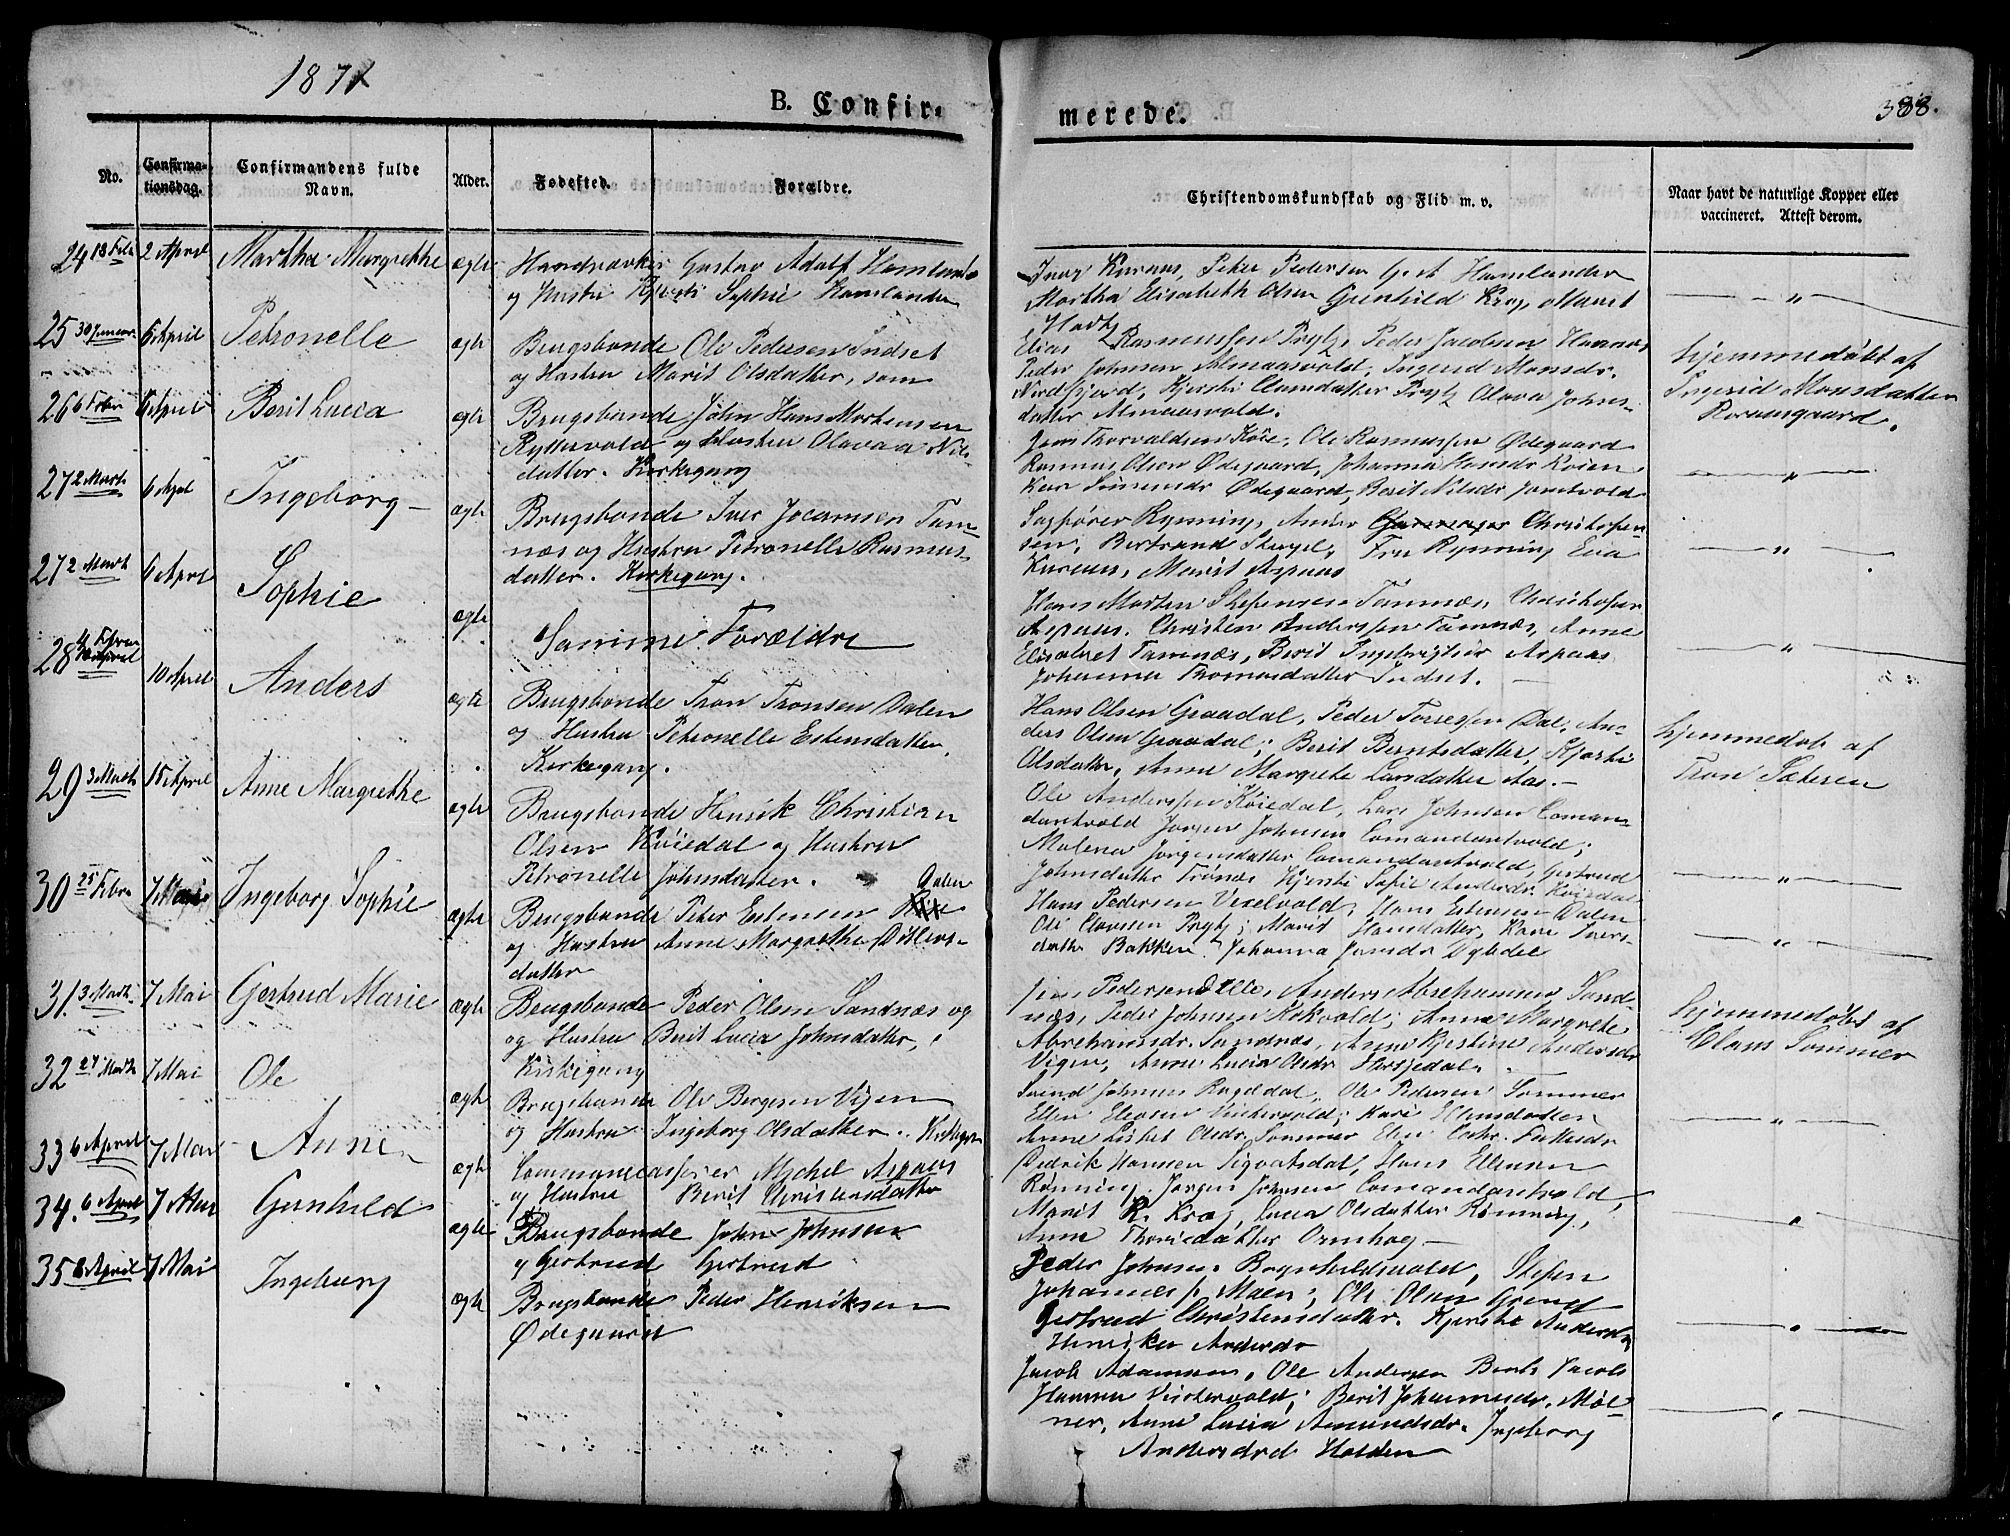 1871
B. Confir-
merede.
388.
No.
Confirma-
tionsdag.
Confirmandens fulde
Navn.
Alder.
Fødested.
Forældre.
Christendomskundskab og Flid m. v.
Naar havt de naturlige Kopper eller
vaccineret. Attest derom.
24 18 Feb 2 April Martha Margrethe ægte Gustav Adolf
og Hustru Sophie Hamlander
Inger Kuraas, Peter Pedersen Hamlander
Martha Elisabeth Olsen Gunhild Krog, Maret
25 30 Januar 6 April Petronelle ægte Brugsbonde Ole Pedersen Indset
og Hustru Marit Olsdatter, som
Elias Rasmussen Prytz, Peder Jacobsen
Peder Johnsen Almaasvold, Ingerid Monsdr.
Nordfjord, Kjersti Clausdatter Prytz Olava Johns-
datter Almaasvold.
Hjemmedøbt af
Ingerid Monsdatter
26 6 Febr 6 April Berit Lucia ægte Brugsbonde John Hans Mortensen
Ryttervold og Hustru Olavaa Nils-
datter. Kirkegang
Jens Thorvaldsen Køie, Ole Rasmussen Ødegaard
Rasmus Olsen Ødegaard, Johanna Hansdr Koien
Kari Simensdr Ødegaard, Berit Nilsdr Jamtvold
27 2 Marts 6 April Ingeborg ægte Brugsbonde Iver Tam-
næs og Hustru Petronelle Rasmus-
datter. Kirkegang.
Sagfører Rynning, Anders Christophen-
sen, Bertrand Fru Rynning Eva
Kuraas, Marit Aspaas
27 2 Marts 6 April Sophie ægte Samme Forældre
Hans Morten Stefensen Tamnæs, Christopher
Aspaas. Christen Anderssen Tamnæs, Anne
Elisabet Tamnæs, Berit Ingebrigtsdr Aspaas
Johanna Thomasdatter Indset.
28 4 Februar 10 April Anders ægte Brugsbonde Tron Tronsen Dalen
og Hustru Petronelle Estensdatter,
Kirkegang.
Hans Olsen Graadal, Peder Dal, An-
ders Olsen Graadal; Berit Berntsdatter, Kjersti
Olsdatter, Anne Margrete Larsdatter Aas.
Hjemmedøb af
Tron Sæteren
29 3 Marts 15 April Anne Margrethe ægte Brugsbonde Henrik Christian
Olsen Køiedal og Hustru
Petronelle Johnsdatter.
Ole Anderssen Køiedal, Lars Johnsen Coman-
dantvold Jørgen Johnsen Comandantvold
Malena Jørgensdatter Comandantvold, Gjertrud
Johnsdatter Trønæs Kjersti Sofie Andersdr. Køiedal
30 25 Febr 7 Mai Ingeborg Sophie ægte Brugsbonde Peter Estensen Dalen
og Hustru Anne Margrethe Ditlevs-
datter
Hans Pedersen Vexelvold, Hans Estensen Dalen
Ole Clausen Prytz; Marit Hansdatter, Kari Ivers-
datter Bakken Johanna Jonsdr Dybdal
31. 3 Marts 7 Mai Gertrud Marie ægte Brugsbonde Peder Olsen Sandnæs og
og Hustru Berit Lucia Johnsdatter,
Kirkegang
Pedersen Anders Abrahamsen Sand-
næs, Peder Johnsen Kokvold; Anne Margrete
Abrahamsdr. Sandnæs, Anne Kjestine Andersdr
Vigen, Anne Lucia Olsdr Herjedal.
Hjemmedøbt af
Claus Sommer
32 27 Marts 7 Mai Ole ægte Brugsbonde Ole Bergesen Vigen
og Hustru Ingeborg Olsdatter. Kirkegang
Svend Johnsen Rugldal, Ole Pedersen Sommer
Ellen Eliasen Vintervold; Kari Ellensdatter
Anne Lisbet Olsdr. Sommer
33 6 April 7 Mai Anne ægte Michel Aspaas
og Hustru Berit Christensdatter
Didrik Hansen Sigvartsdal, Hans Ellensen
Rønning, Jørgen Johnsen Comandantvold,
Marit R. Krog, Lucia Olsdatter Rønning,
Anne Ormhog
34. 6 April 7 Mai Gunhild ægte Brugsbonde John Johnsen
og Gertrud Gertrud
Peder Johnsen Bognhildsvold, Stefen
Johannes Moen; Ole Olsen
Gertrud Christensdatter. Kjersti Andersdr
Henrikke Andersdr
35 8 April 7 Mai Ingeborg ægte Brugsbonde Peder Henriksen
Ødegaard
Jacob Adamsen, Ole Andersen Jacob
Hansen Vintervold; Berit Johannesdr. Møl-
ner, Anne Lucia Amundsdr. Ingeborg
Andersdr Holden